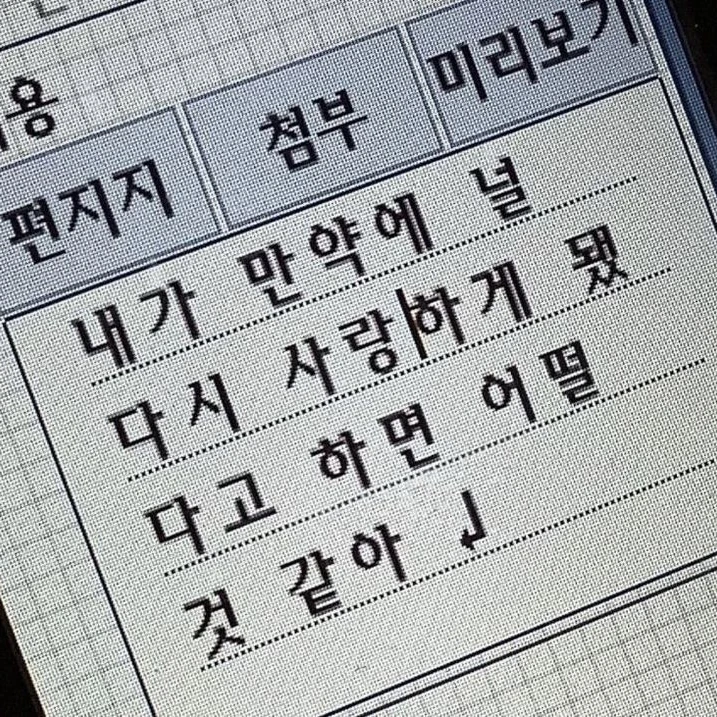 용
편지지 첨부 미리보기
내가 만약에 널
다시 사랑하게 됐
다고 하면 어떨
것 같아